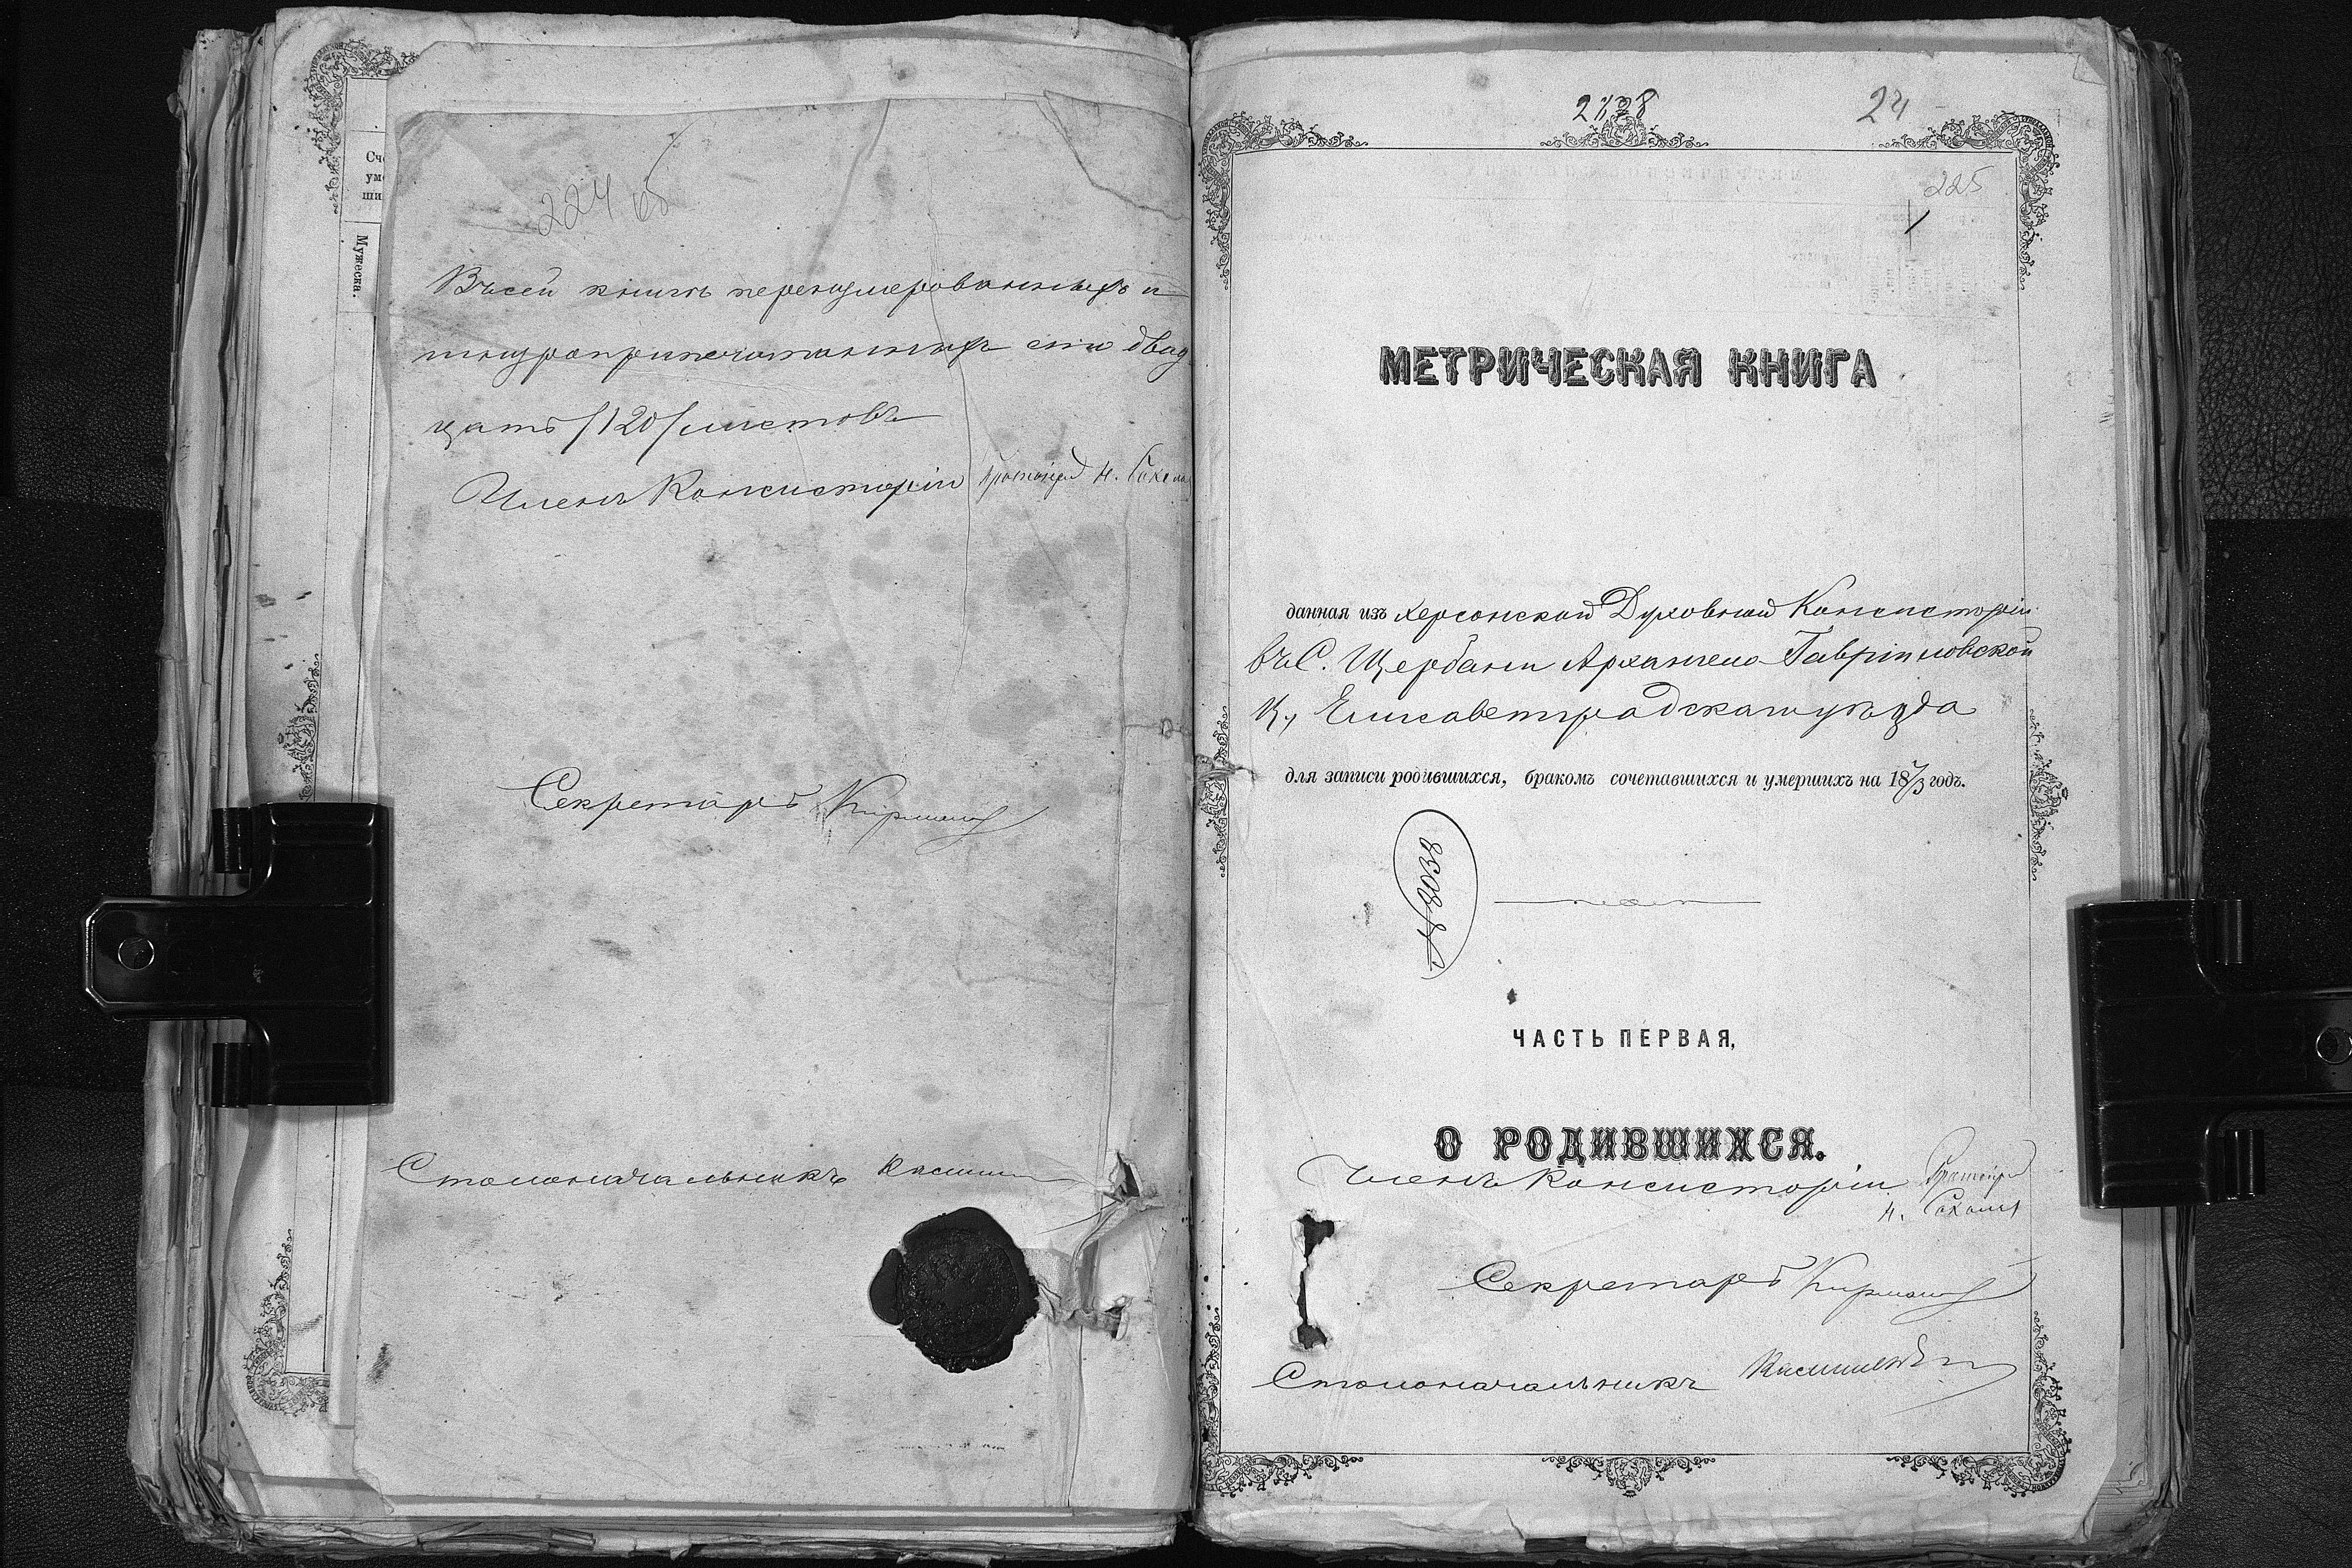 Сче
уме
ши
Мужеска.
224 об
Въ сей книгѣ перенумерованныхъ и
шнуроприпечатанныхъ сто двад
цать /120/ листовъ
Членъ Консисторіи Протоіерей Н.
Секретарь
Столоначальникъ
24
225
МЕТРИЧЕСКАЯ КНИГА
данная изъ Херсонской Духовной Консисторіи
въ С. Щербани Архангело-Гавріиловской
Ц., Елисаветградскаго уѣзда
для записи родившихся, бракомъ сочетавшихся и умершихъ на 1873 годъ.
№ 8038
ЧАСТЬ ПЕРВАЯ,
О РОДИВШИХСЯ.
Членъ Консисторіи Протоіерей
Н.
Секретарь
Столоначальникъ